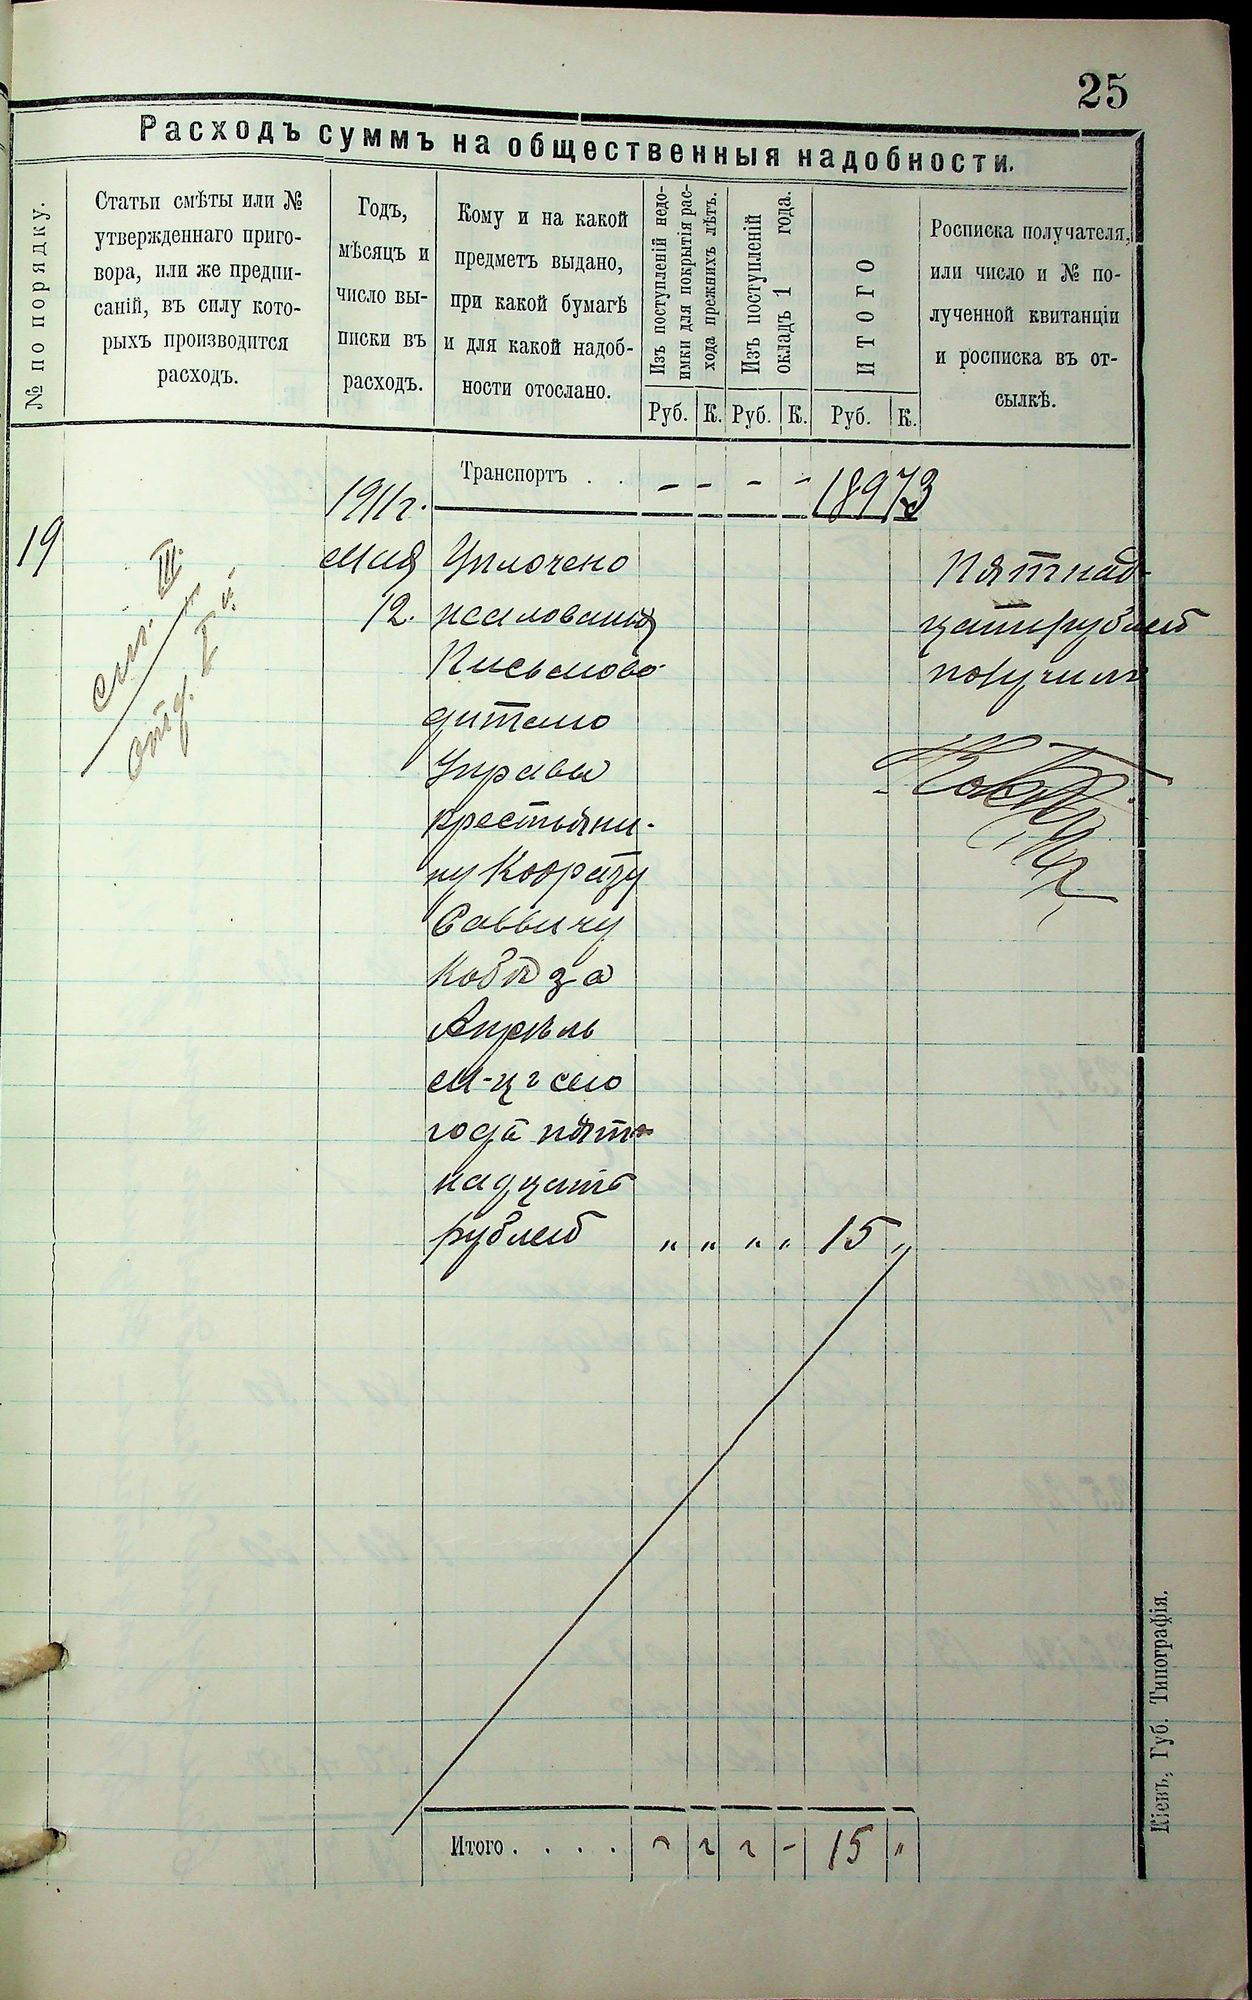 25
Расходъ суммъ на общественныя надобности.
№ по порядку.
Статьи смѣты или №
утвержденнаго приго-
вора, или же предпи-
саній, въ силу кото-
рыхъ производится
расходъ.
Годъ,
мѣсяцъ и
число вы-
писки въ
расходъ.
Кому и на какой
предметъ выдано,
при какой бумагѣ
и для какой надоб-
ности отослано.
Изъ поступленій недо-
имки для покрытія рас-
хода прежнихъ лѣтъ.
Изъ поступленій
окладъ 1 года.
ИТОГО
Руб. К. Руб. К. Руб. К.
Росписка получателя,
или число и № по-
лученной квитанціи
и росписка въ от-
сылкѣ.
Транспортъ . . - - - - 189 73
19
ст. III.
отд. I й
1911 г.
Мая
12.
Уплочено
жалованья
Письмово-
дителю
Управы
крестьяни-
ну Кодрату
Саввичу
Кобѣ за
Апрѣль
м-цъ сего
года пят-
надцать
рублей " " " " 15 "
Пятнад-
цать рублей
получилъ
Итого . . . . 15 "
Кіевъ, Губ. Типографія.